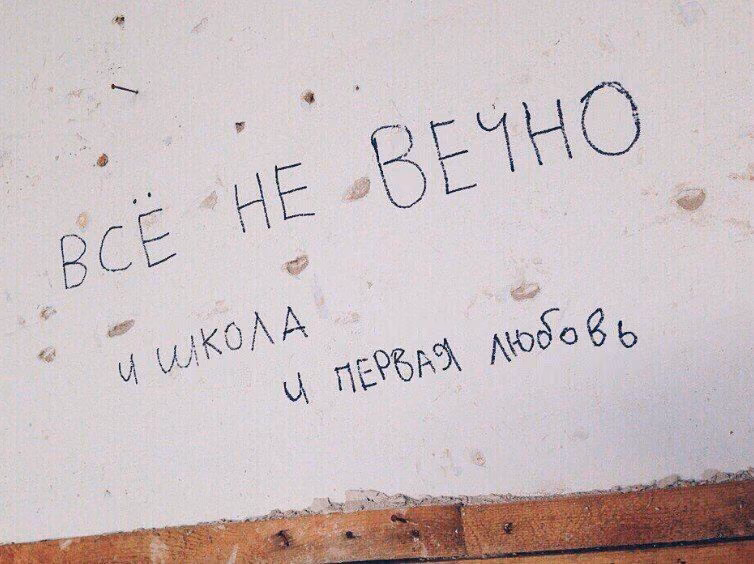 ВСЁ НЕ ВЕЧНО
и школА
и ПЕРВАЯ любовь